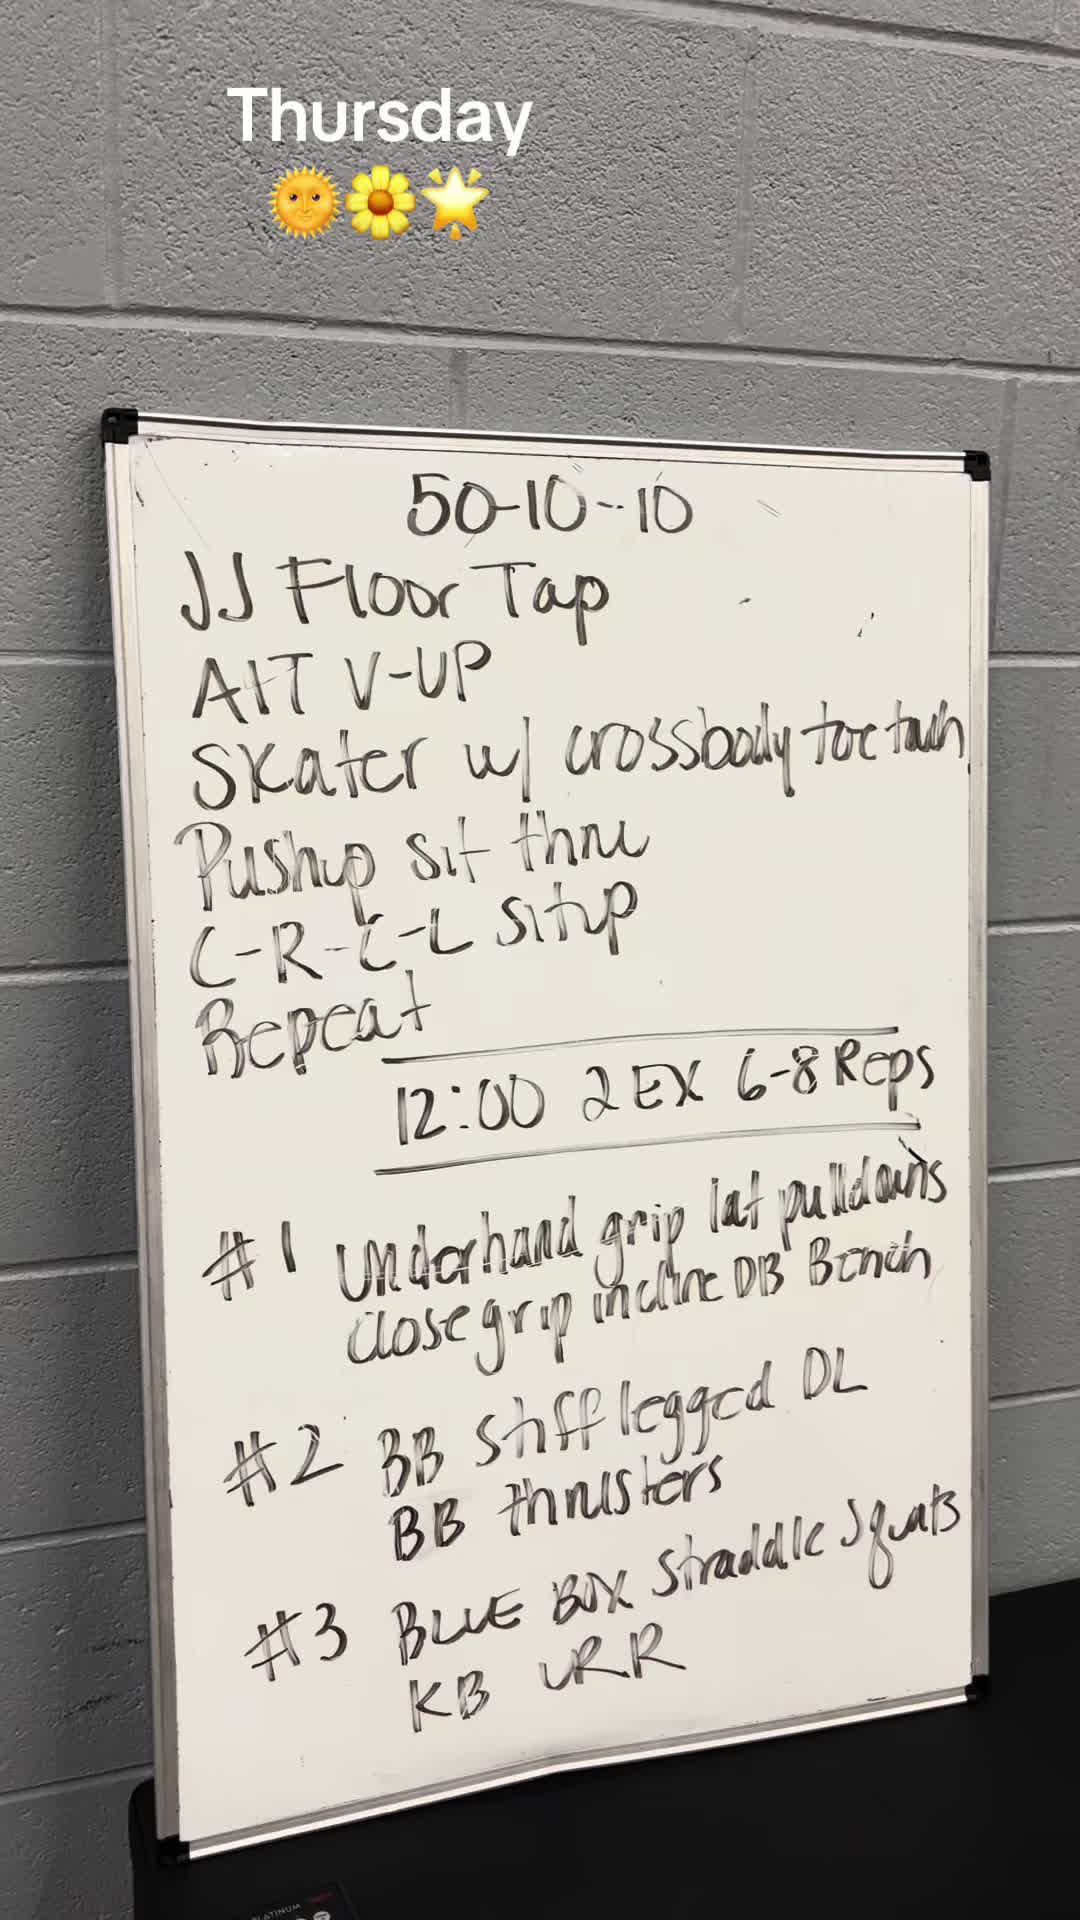 Thursday
🌞🌼🌟
50-10--10
JJ Floor Tap
AlT V-UP
Skater w/ crossbody toe touch
Pushup sit thru
C-R-C-L situp
Repeat
12:00 2 EX 6-8 Reps
#1 Underhand grip lat pulldowns
close grip incline DB Bench
#2 BB stiff legged DL
BB thrusters
#3 BLUE BOX straddle squats
KB URR
PLATINUM